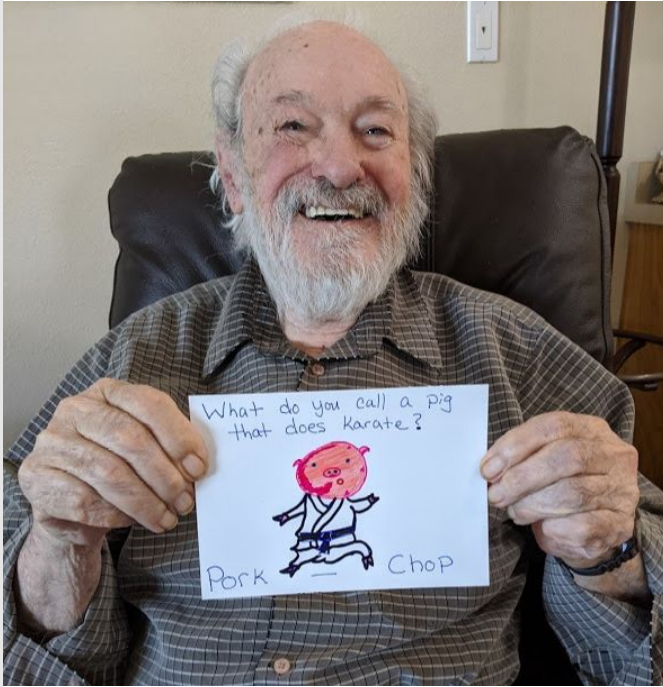 What do you call a pig
that does karate?
Pork — Chop